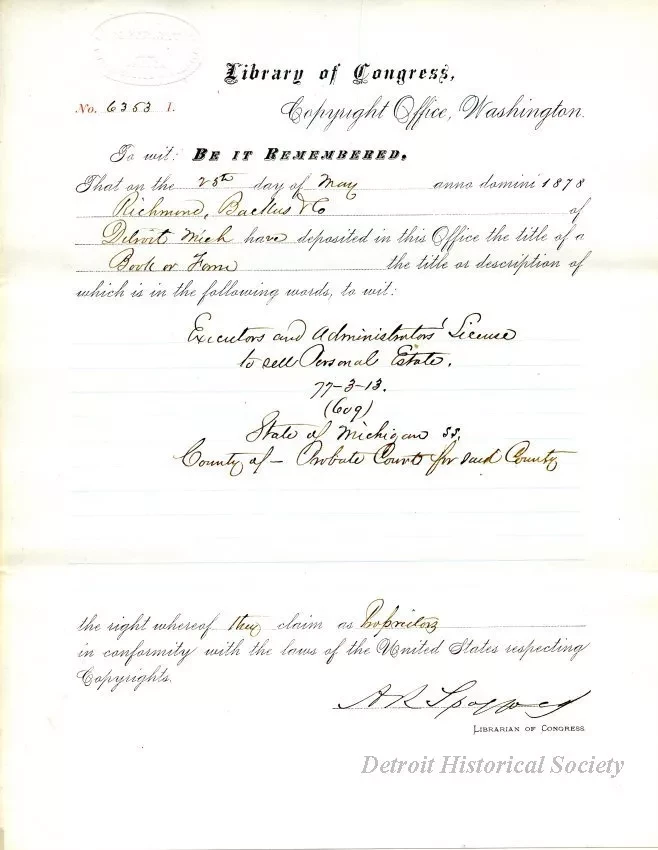 Library of Congress,
No. 6353 I.
Copyright Office, Washington.
To wit: BE IT REMEMBERED,
That on the 25th day of May anno domini 1878
Richmond, Backus & Co of
Detroit Mich have deposited in this Office the title of a
Book or Form the title or description of
which is in the following words, to wit:
Executors and Administrators' License
to sell Personal Estate.
77-3-13.
(609)
State of Michigan ss.
County of — Probate Court for said County
the right whereof they claim as Proprietors
in conformity with the laws of the United States respecting
Copyrights.
A R Spofford
LIBRARIAN OF CONGRESS
Detroit Historical Society